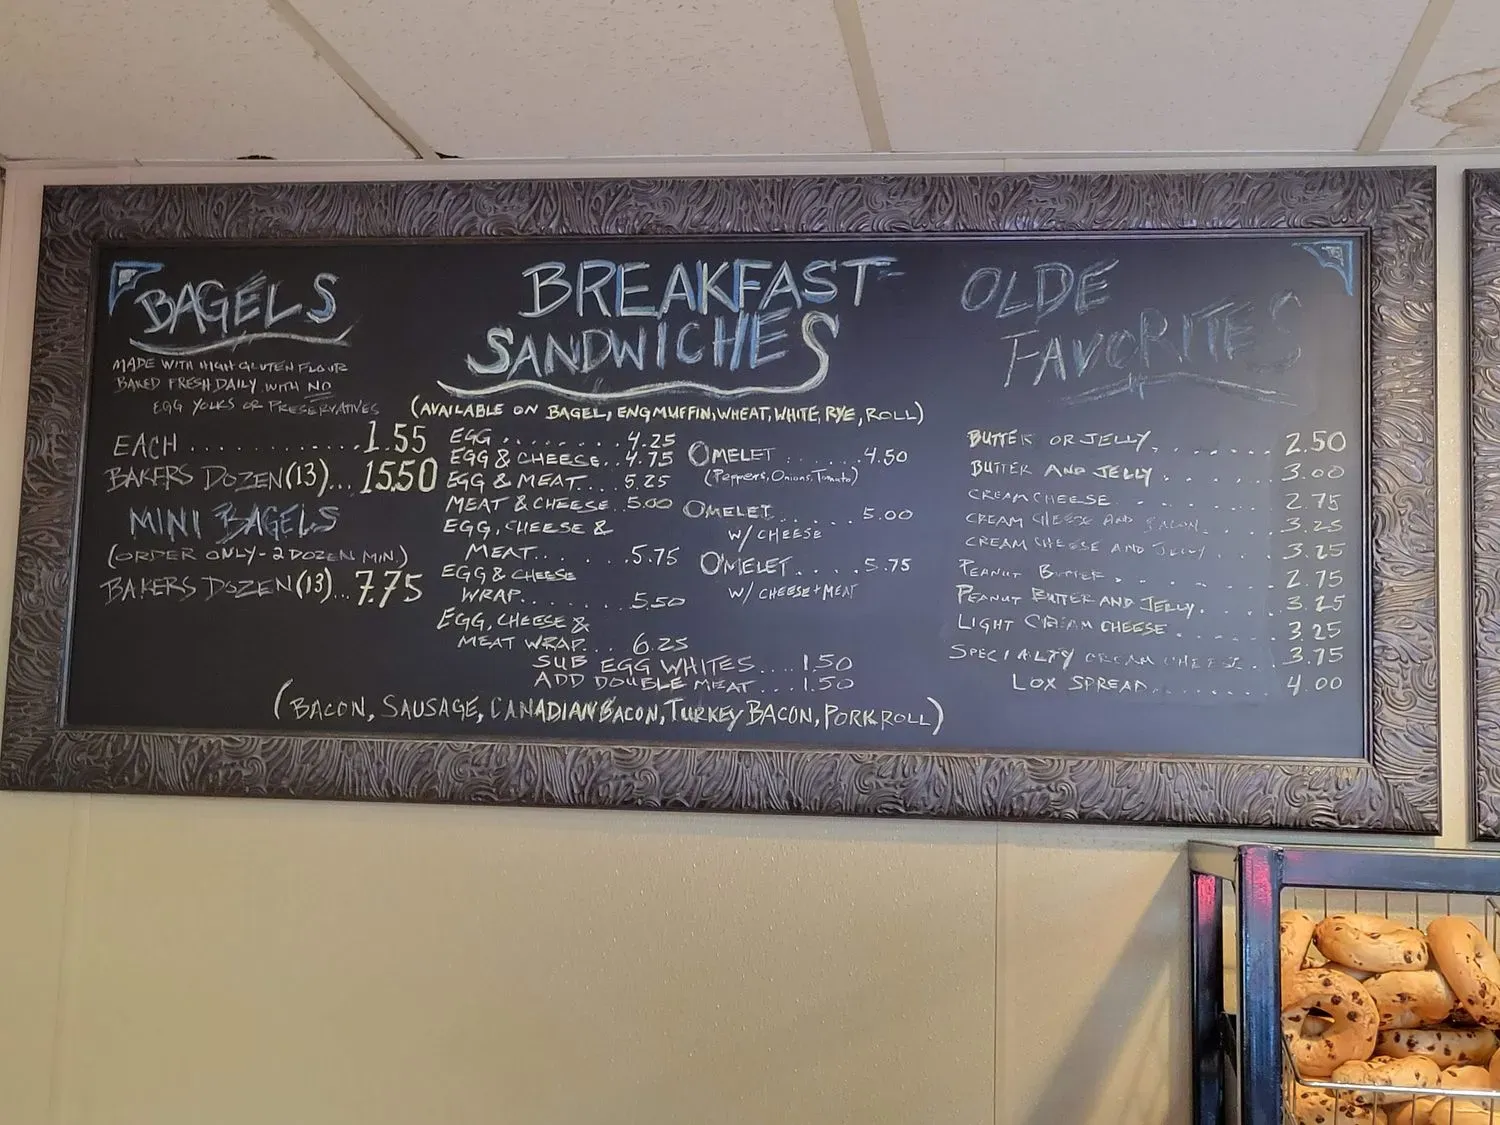 BAGELS
MADE WITH HIGH GLUTEN FLOUR
BAKED FRESH DAILY WITH NO
EGG YOLKS OR PRESERVATIVES
EACH ............ 1.55
BAKERS DOZEN (13)... 15.50
MINI BAGELS
(ORDER ONLY - 2 DOZEN MIN.)
BAKERS DOZEN (13)... 7.75
BREAKFAST
SANDWICHES
(AVAILABLE ON BAGEL, ENG MUFFIN, WHEAT, WHITE, RYE, ROLL)
EGG ........ 4.25
EGG & CHEESE... 4.75
EGG & MEAT... 5.25
MEAT & CHEESE. 5.00
EGG, CHEESE &
MEAT... . . .5.75
EGG & CHEESE
WRAP........ 5.50
EGG, CHEESE &
MEAT WRAP... 6.25
OMELET ...... 4.50
(Peppers, Onions, Tomato)
OMELET...... 5.00
W/ CHEESE
OMELET..... 5.75
W/ CHEESE + MEAT
SUB EGG WHITES.... 1.50
ADD DOUBLE MEAT... 1.50
(BACON, SAUSAGE, CANADIAN BACON, TURKEY BACON, PORK ROLL)
OLDE
FAVORITES
BUTTER OR JELLY....... 2.50
BUTTER AND JELLY...... 3.00
CREAM CHEESE ........ 2.75
CREAM CHEESE AND BACON.... 3.25
CREAM CHEESE AND JELLY.... 3.25
PEANUT BUTTER........ 2.75
PEANUT BUTTER AND JELLY..... 3.25
LIGHT CREAM CHEESE ...... 3.25
SPECIALTY CREAM CHEESE... 3.75
LOX SPREAD........ 4.00